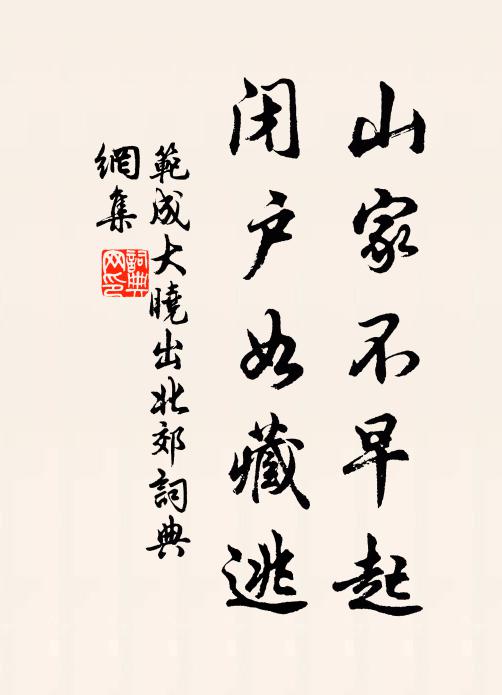 山家不早起
閉户如藏逃
範成大曉出北郊詞典
網集
詞典
网印